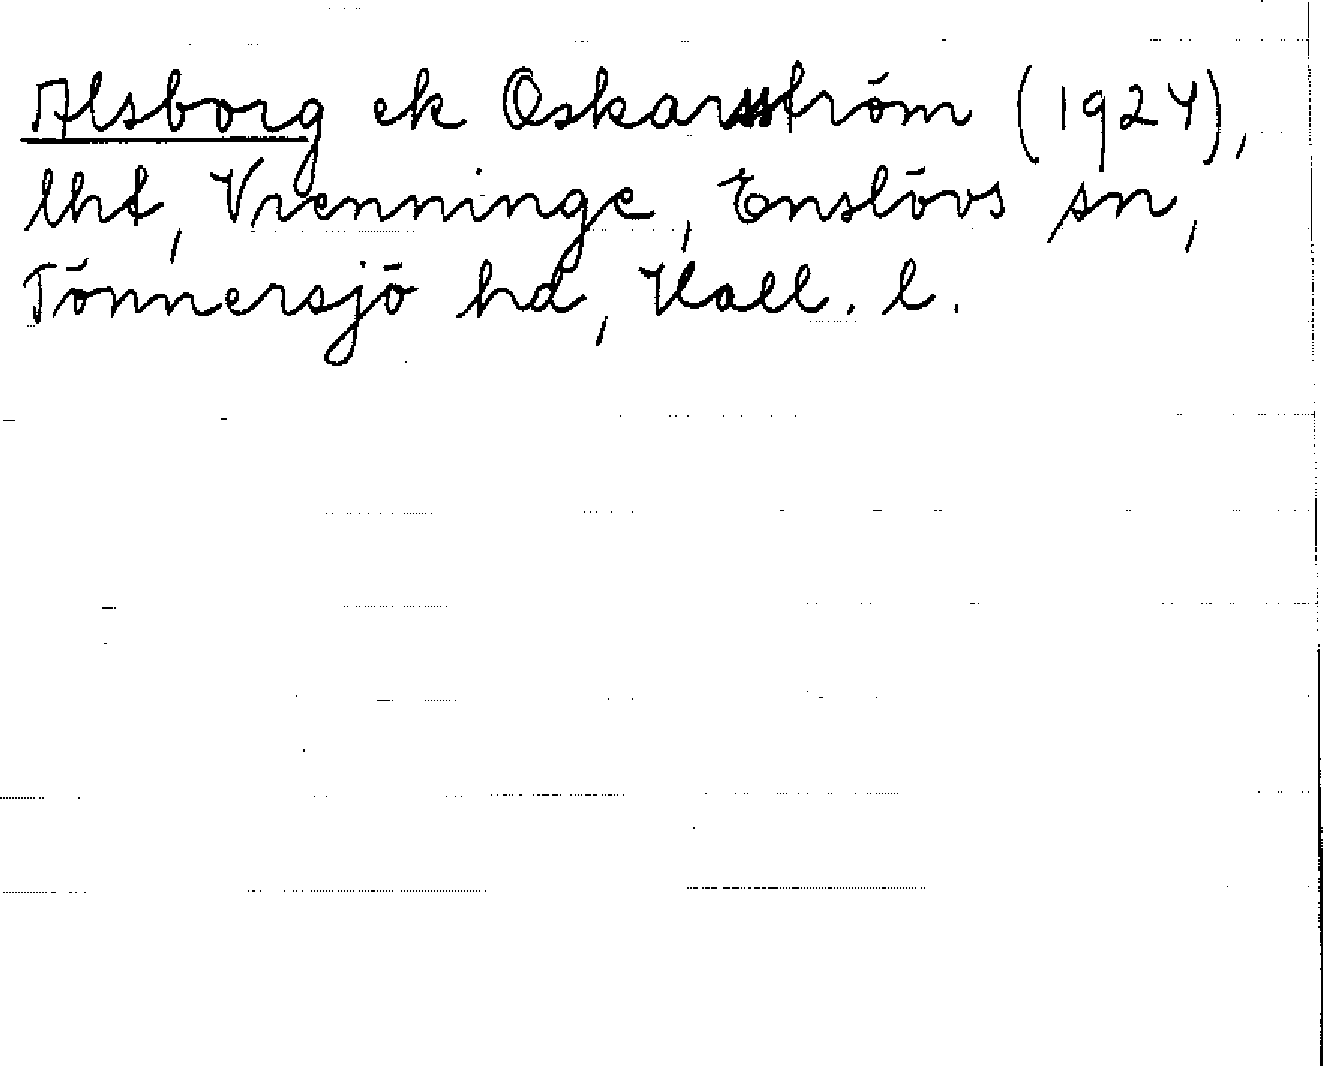 Alsborg ek Oskarström (1924),
lht, Vrenninge, Enslövs sn,
Tönnersjö hd, Hall. l.